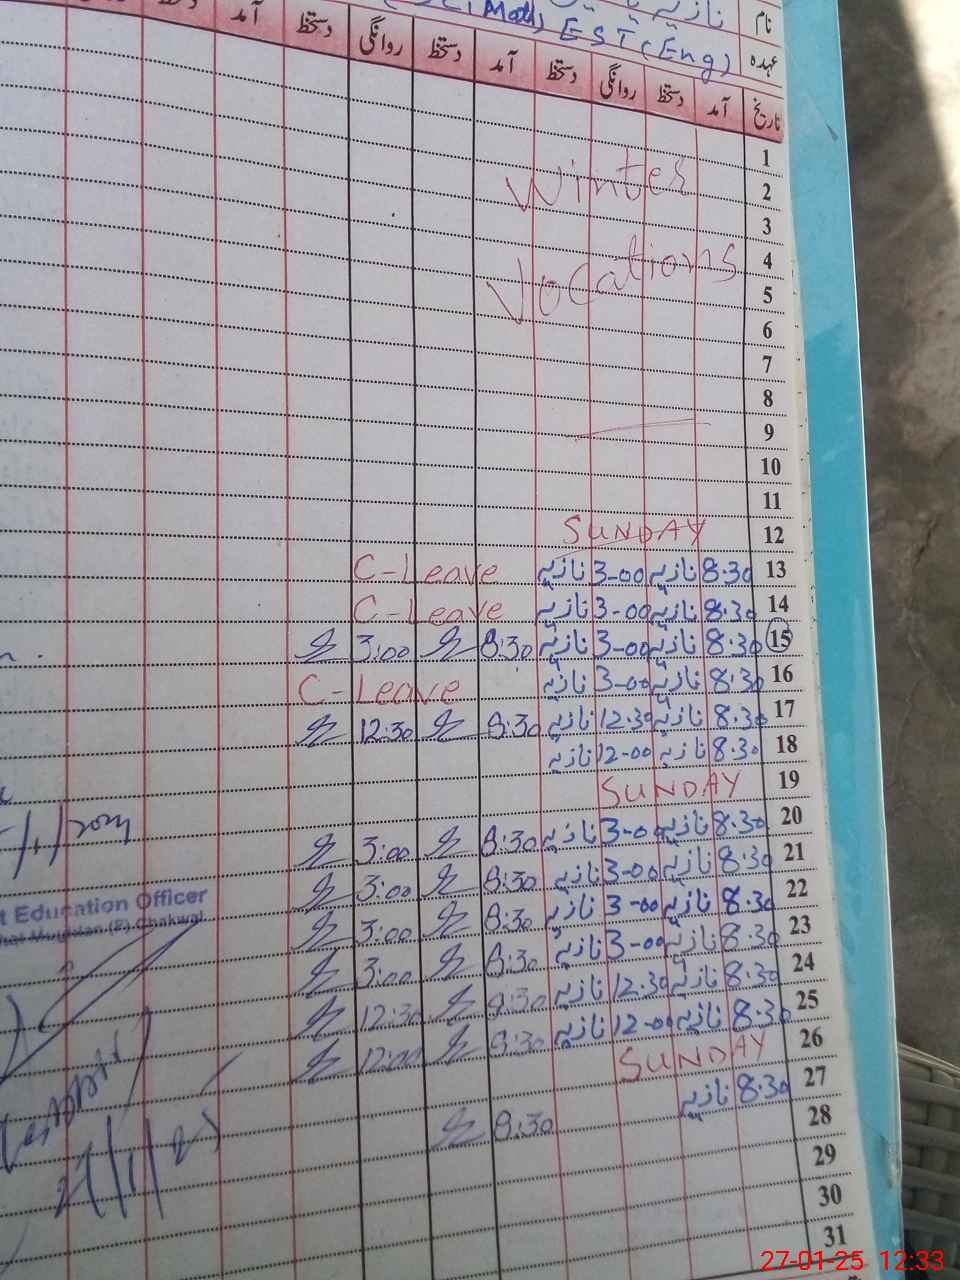 نام نازیہ
عہدہ (Math) EST (Eng)
تاریخ آمد دستخط روانگی دستخط آمد دستخط روانگی دستخط آمد
1
2 Winter
3
4 Vocations
5
6
7
8
9
10
11
12 SUNDAY
13 8.30 نازیہ 3-00 نازیہ C-Leave
14 8.30 نازیہ 3-00 نازیہ C-Leave
15 8.30 نازیہ 3-00 نازیہ 8:30 3:00
16 8.30 نازیہ 3-00 نازیہ C-Leave
17 8.30 نازیہ 12.30 نازیہ 8:30 12:30
18 8.30 نازیہ 12-00 نازیہ
19 SUNDAY
20 8.30 نازیہ 3-00 نازیہ 8:30 3:00
21 8.30 نازیہ 3-00 نازیہ 8:30 3:00
22 8.30 نازیہ 3-00 نازیہ 8:30 3:00
23 8.30 نازیہ 3-00 نازیہ 8:30 3:00
24 8.30 نازیہ 12.30 نازیہ 8:30 12:30
25 8.30 نازیہ 12-00 نازیہ 8:30 12:00
26 SUNDAY
27 8.30 نازیہ 8:30
28
29
30
31
Education Officer
(F) Chakwal
27-01-25 12:33